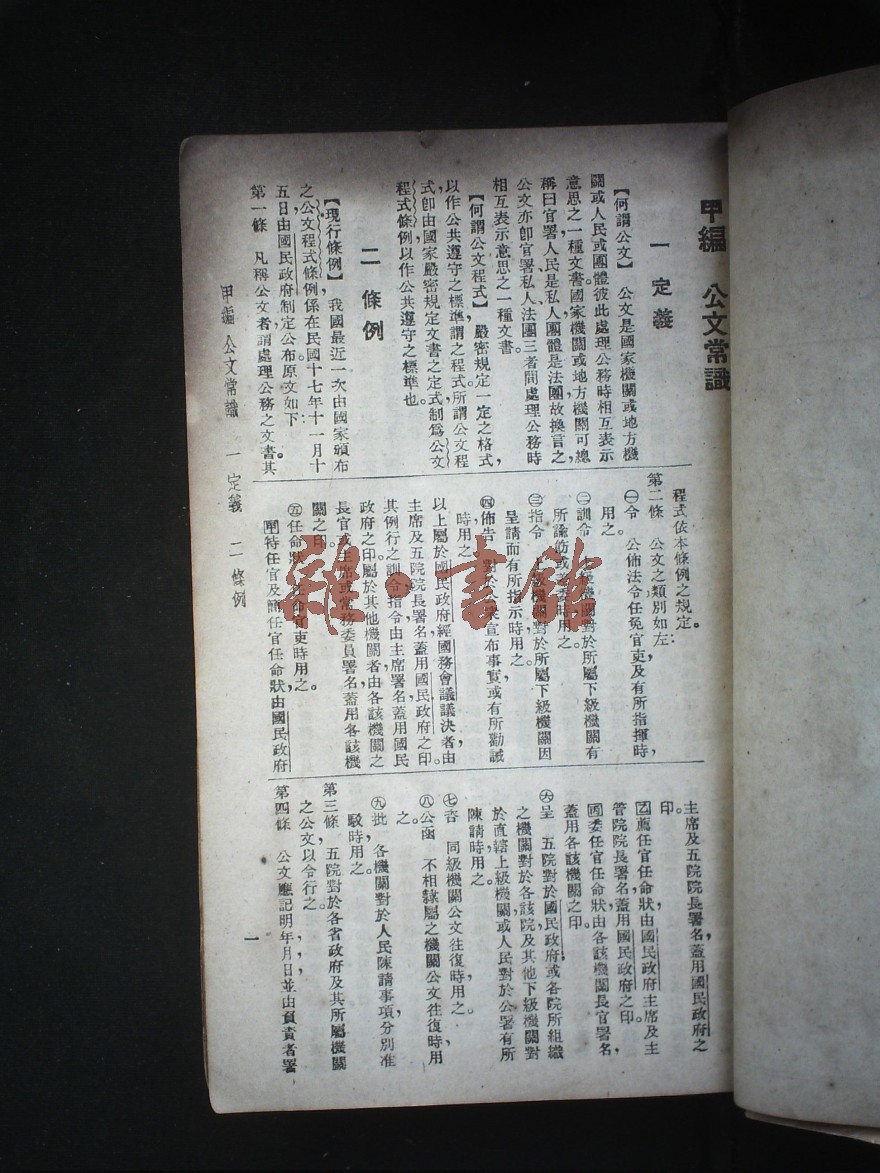 甲編　公文常識
一　定義
【何謂公文】　公文是國家機關或地方機
關或人民或團體彼此處理公務時相互表示
意思之一種文書。國家機關或地方機關可總
稱曰官署，人民是私人，團體是法團，故換言之，
公文亦卽官署、私人、法團三者間處理公務時
相互表示意思之一種文書。
【何謂公文程式】　嚴密規定一定之格式，
以作公共遵守之標準謂之程式，所謂公文程
式卽由國家嚴密規定文書之定式制爲公文
程式條例以作公共遵守之標準也。
二　條例
【現行條例】　我國最近一次由國家頒布
之公文程式條例係在民國十七年十一月十
五日由國民政府制定公布原文如下：
第一條　凡稱公文者，謂處理公務之文書。其
程式依本條例之規定。
第二條　公文之類別如左：
㊀令　公佈法令任免官吏及有所指揮時，
用之。
㊁訓令　上級機關對於所屬下級機關有
所諭飭或差委時用之。
㊂指令　上級機關對於所屬下級機關因
呈請而有所指示時用之。
㊃佈告　對於公衆宣布事實或有所勸誡
時用之。
以上屬於國民政府經國務會議議決者，由
主席及五院院長署名蓋用國民政府之印。
其例行之訓令指令由主席署名蓋用國民
政府之印。屬於其他機關者由各該機關之
長官或主席或常務委員署名蓋用各該機
關之印。
㊄任命狀　任命官吏時用之。
甲特任官及簡任官任命狀，由國民政府
主席及五院院長署名，蓋用國民政府之
印。
乙薦任官任命狀由國民政府主席及主
管院院長署名，蓋用國民政府之印。
丙委任官任命狀由各該機關長官署名，
蓋用各該機關之印。
㊅呈　五院對於國民政府或各院所組織
之機關對於各該院及其他下級機關對
於直轄上級機關，或人民對於公署有所
陳請時用之。
㊆咨　同級機關公文往復時用之。
㊇公函　不相隸屬之機關公文往復時用
之。
㊈批　各機關對於人民陳請事項分別准
駁時用之。
第三條　五院對於各省政府及其所屬機關
之公文以令行之。
第四條　公文應記明年，月，日，並由負責者署
甲編　公文常識　一　定義　二　條例
一
雜·書館